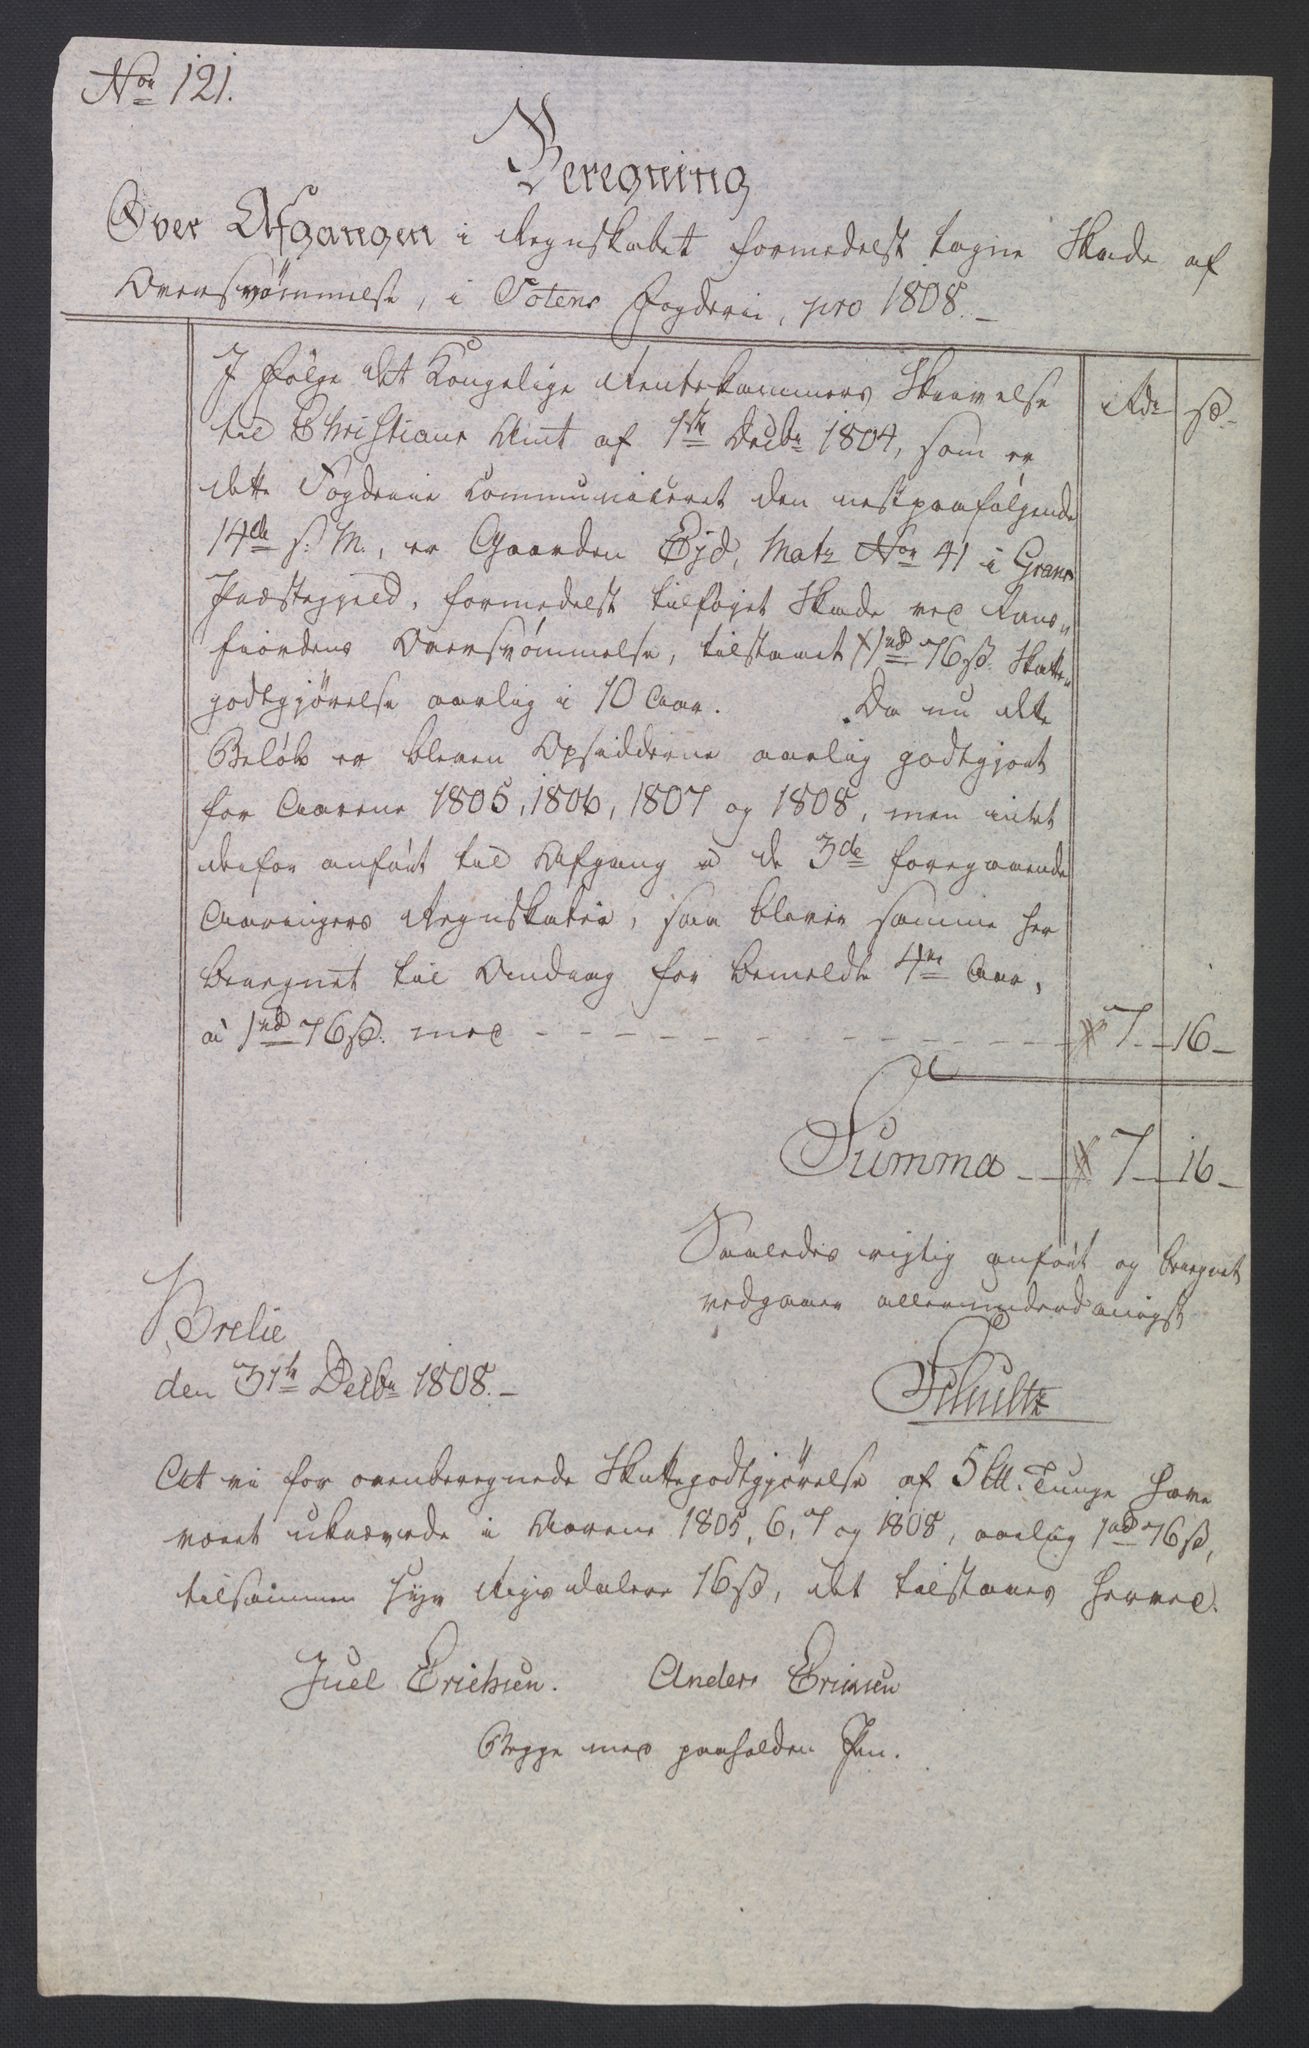 Nor 121.
Beregning
Over Afgangen i Regnskabet formedelst tagne Skade af
Oversvømmelse, i Totens Fogderie, pro 1808.
Rdr ß.
I Følge det Kongelige Rentekammers Skrivelse
til Christians Amt af 1ste Decbr 1804, som er
dette Fogderie communiceret den nestpaafølgende
14de s: M., er Gaarden Ejd, Matr Nor 41 i Grans
Præstegjeld, formedelst tilføjet Skade ved Rans-
fiordens Oversvømmelse, tilstaaet 1rd 76 ß. Skatte-
godtgjørelse aarlig i 10 Aar. Da nu dette
Beløb er bleven Opsidderne aarlig godtgjort
for Aarene 1805, 1806, 1807 og 1808, men intet
derfor anført til Afgang i de 3de foregaaende
Aaringers Regnskaber, saa bliver samme her
beregnet til Omdrag for bemeldte 4re Aar,
a 1rd 76 ß. med - - - 7 - 16 -
Summa - 7 - 16 -
Saaledes rigtig anført og beregnet
vedgaaer allerunderdanigst
Brelie
den 31te Decbr 1808. -
Schultz
At vi for ovenberegnede Skattegodtgjørelse af 5 ℔. Tunge have
været ukrævede i Aarene 1805, 6, 7 og 1808, aarlig 1rd 76 ß,
tilsammen syv Rigsdaler 16 ß, det tilstaaes herved.
Juel Erichsen. Anders Erichsen
Begge med paaholden Pen.